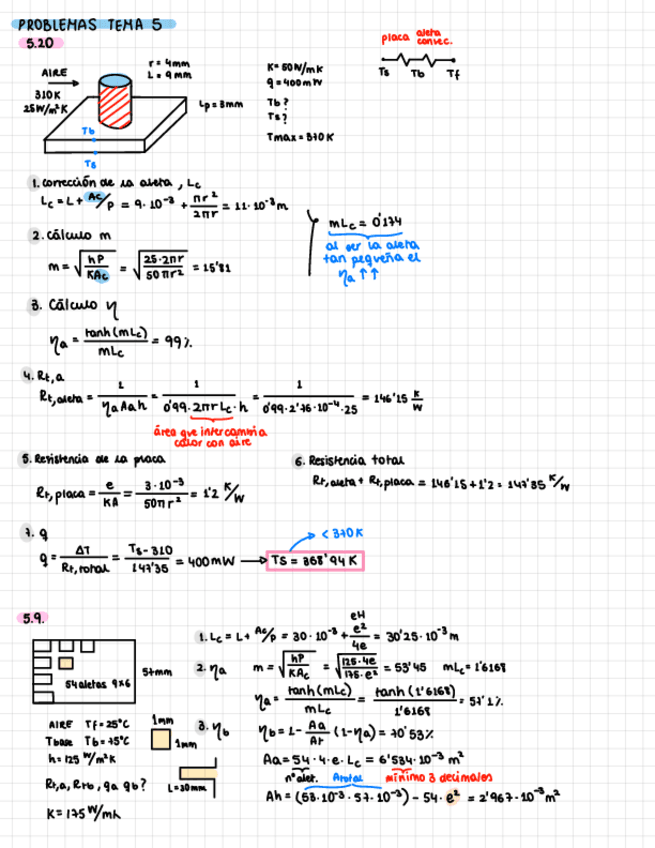 PROBLEMAS TEMA 5
5.20
placa aleta convec.
Ts Tb Tf
AIRE
310K
25W/m²K
r = 4mm
L = 9mm
Lp = 3mm
Tb
Ts
K = 50W/mK
q = 400mW
Tb?
Ts?
Tmax = 370K
1. Corrección de la aleta, Lc
Lc = L + Ac/P = 9·10⁻³ + πr²/2πr = 11·10⁻³m
mLc = 0'174
al ser la aleta
tan pequeña el
ηa ↑↑
2. Cálculo m
m = √(hP/KAc) = √(25·2πr/50πr²) = 15'81
3. Cálculo η
ηa = tanh(mLc)/mLc = 99%
4. Rt,a
Rt,aleta = 1/(ηa Aa h) = 1/(0'99·2πr Lc·h) = 1/(0'99·2'76·10⁻⁴·25) = 146'15 K/W
área que intercambia
calor con aire
5. Resistencia de la placa
Rt,placa = e/KA = 3·10⁻³/50πr² = 1'2 K/W
6. Resistencia total
Rt,aleta + Rt,placa = 146'15 + 1'2 = 147'35 K/W
7. q
q = ΔT/Rt,total = (Ts - 310)/147'35 = 400mW → Ts = 368'94K
< 370K
5.9.
54 aletas 9x6
57mm
AIRE Tf = 25°C
Tbase Tb = 75°C
h = 125 W/m²K
Rt,a, Rtb, qa qb?
K = 175 W/mK
1mm
1mm
L = 30mm
eH
1. Lc = L + Ac/P = 30·10⁻³ + e²/4e = 30'25·10⁻³m
2. ηa m = √(hP/KAc) = √(125·4e/175·e²) = 53'45 mLc = 1'6168
ηa = tanh(mLc)/mLc = tanh(1'6168)/1'6168 = 57'1%
3. ηb ηb = 1 - Aa/At (1-ηa) = 70'53%
Aa = 54·4·e·Lc = 6'534·10⁻³ m²
nºalet. Atotal mínimo 3 decimales
Ah = (53·10⁻³·57·10⁻³) - 54·e² = 2'967·10⁻³m²